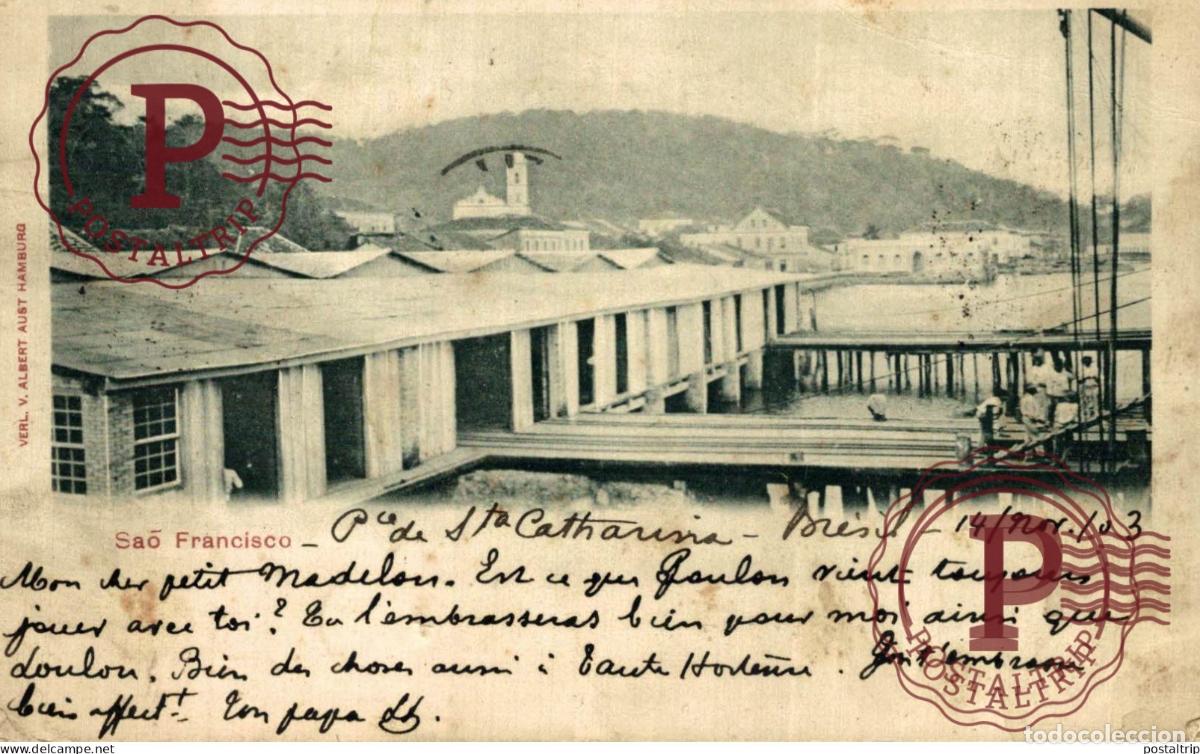 P
POSTALTRIP
VERL. V. ALBERT AUST HAMBURG
Saõ Francisco - Pce de Sta Catharina - Brésil - 14/Nov./03
Mon cher petit Madelon. Est ce que Loulon vient toujours
jouer avec toi? Tu l'embrasseras bien pour moi ainsi que
Loulon. Bien des choses aussi à Tante Hortense. Je t'embrasse
bien affectt Ton papa
P
POSTALTRIP
POSTALTRIP
todocoleccion
www.todocoleccion.net
postaltrip